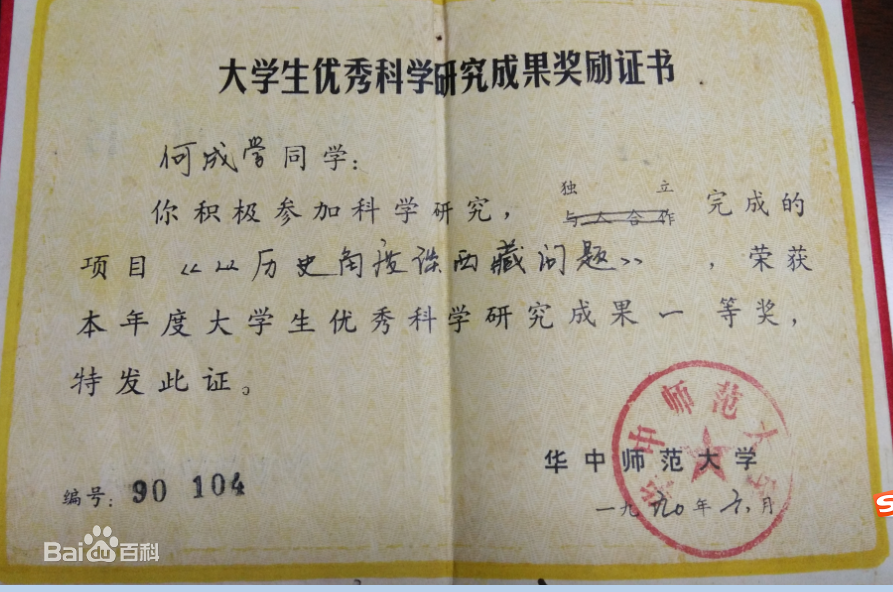 大学生优秀科学研究成果奖励证书
何成学同学：
独立
你积极参加科学研究，与人合作完成的
项目《从历史角度谈西藏问题》，荣获
本年度大学生优秀科学研究成果一等奖，
特发此证。
华中师范大学
华中师范大学
编号：90 104
一九九〇年六月
Bai百科